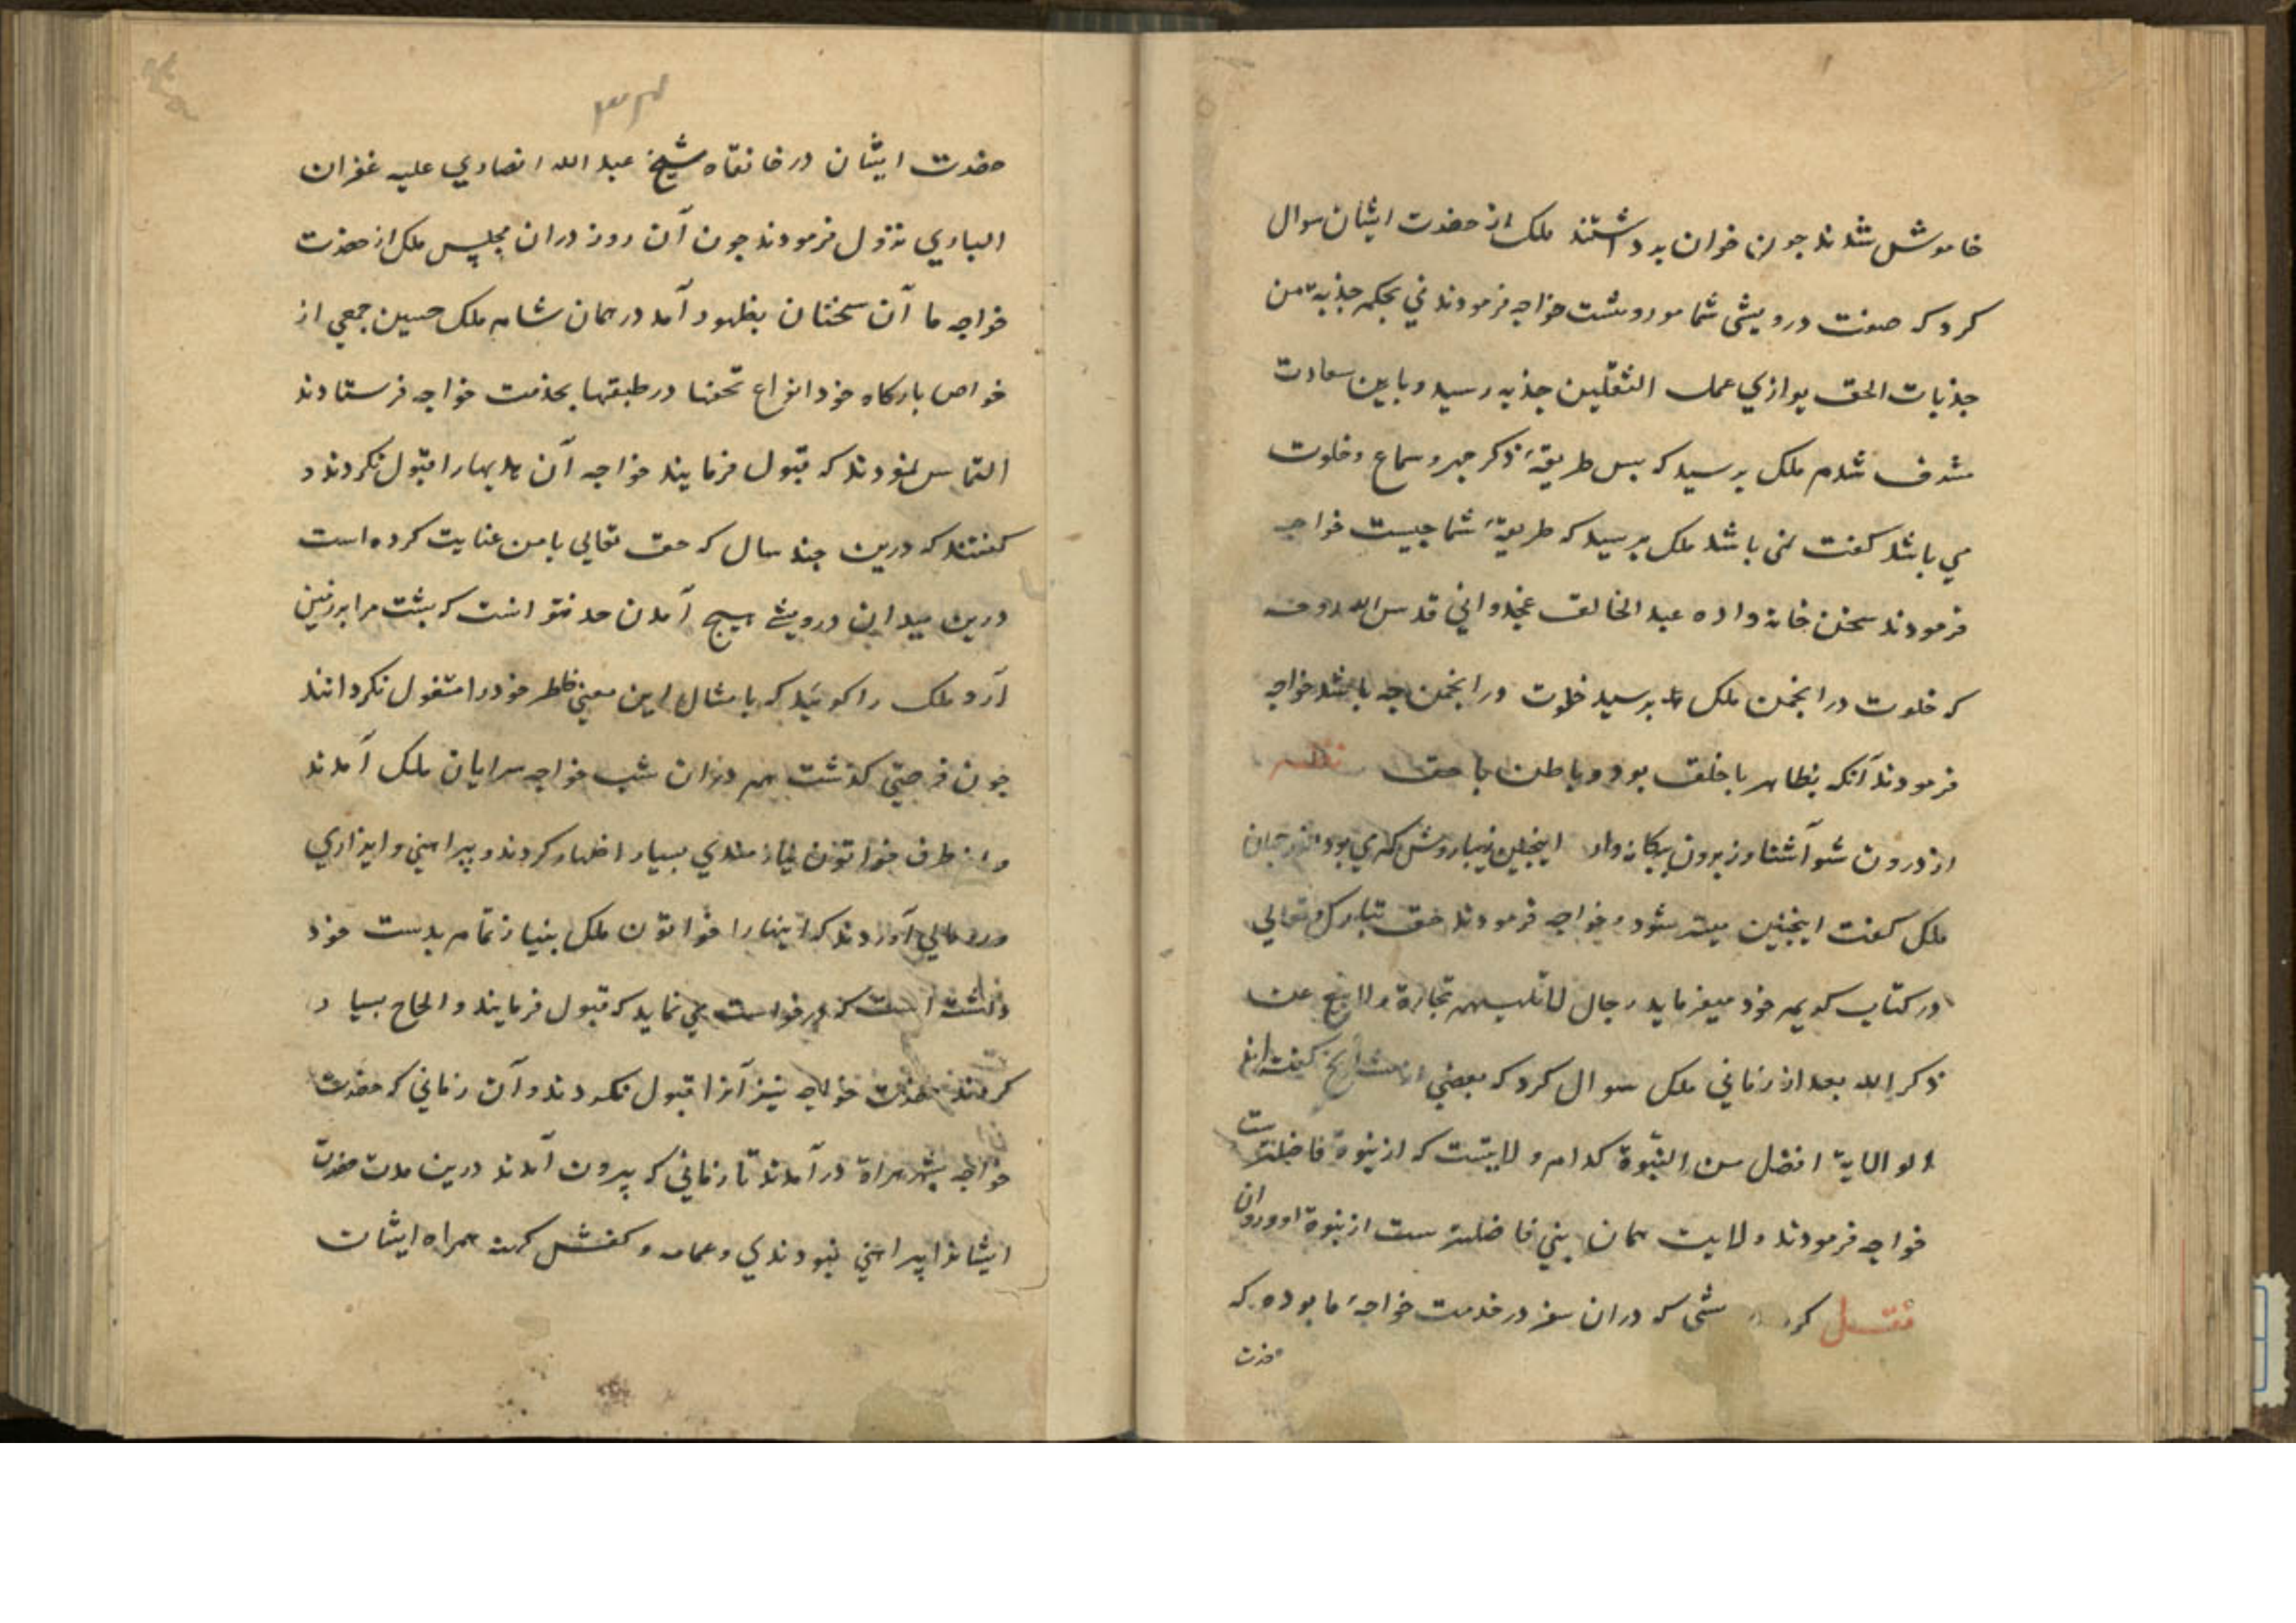 خاموش شدند جون خوان برداشتند ملک از حضرت ایشان سوال
کرد که صفت درویشی شما موروثست خواجه فرمودند نی بحکم جذبة من
جذبات الحق یوازی عمل الثقلین جذبه رسید و باین سعادت
مشرف شدم ملک برسید که بس طریقهٔ ذکر جهر و سماع و خلوت
می باشد کفت نمی باشد ملک برسید که طریقهٔ شما جیست خواجه
فرمودند سخن خانواده عبد الخالق غجدوانی قدس الله روحه
که خلوت در انجمن ملک برسید خلوت در انجمن جه باشد خواجه
فرمودند آنکه بظاهر با خلق بود و بباطن با حق نظم
از درون شو آشنا وز برون بیکانه وار اینجنین زیبا روش کم می بود اندر جهان
ملک کفت اینجنین میسر شود خواجه فرمودند حق تبارک و تعالی
در کتاب کریم خود میفرماید رجال لا تلهیهم تجارة ولا بیع عن
ذکر الله بعد از زمانی ملک سوال کرد که بعضی از مشایخ کفته اند
الولایة افضل من النبوة کدام ولایتست که از نبوة فاضلترست
خواجه فرمودند ولایت همان نبی فاضلترست از نبوة او
نقل کرد که دران سفر در خدمت خواجهٔ ما بوده که
حضرت
۳۴
حضرت ایشان در خانقاه شیخ عبد الله انصاری علیه غفران
الباری نزول فرمودند جون آن روز دران مجلس ملک از حضرت
خواجه ما آن سخنان بظهور آمد در همان شام ملک حسین جمعی از
خواص بارکاه خود انواع تحفها در طبقها بخدمت خواجه فرستادند
التماس نمودند که قبول فرمایند خواجه آن هدیها را قبول نکردند و
کفتند که درین جند سال که حق تعالی با من عنایت کرده است
درین میدان درویشی هیج آمدن حد نتوانست که بشت مرا بر زمین
آرد ملک را کوئید که بامثال این معنی خاطر خود را مشغول نکردانند
جون فرصتی کذشت هم دران شب خواجه سرایان ملک آمدند
و از طرف خواتون نیازمندی بسیار اظهار کردند و پیراهنی و ایزاری
و رومالی آوردند که اینها را خواتون ملک بنیاز تمام بدست خود
رشته است که درخواست می نماید که قبول فرمایند و الحاح بسیار
کردند حضرت خواجه نیز آنرا قبول نکردند و آن زمانی که حضرت
خواجه بشهر هراة در آمدند تا زمانی که بیرون آمدند درین مدت حضرت
ایشانرا پیراهنی نبود و عمامه و کفش کهنه همراه ایشان